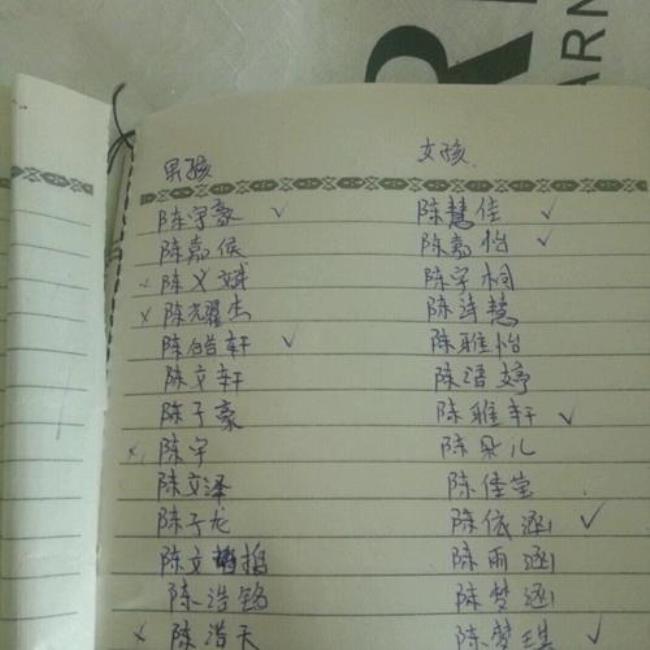 ARN
男孩 女孩
陈宇豪 ✓ 陈慧佳 ✓
陈嘉俊 陈嘉怡 ✓
× 陈义斌 陈宇桐
× 陈耀杰 陈诗慧
陈皓轩 ✓ 陈雅怡
陈文轩 陈语婷
陈子豪 陈雅轩 ✓
× 陈宇 陈果儿
陈文泽 陈佳莹
陈子龙 陈依涵 ✓
陈文 陈雨涵
陈浩铭 陈梦涵
× 陈浩天 陈梦琪 ✓